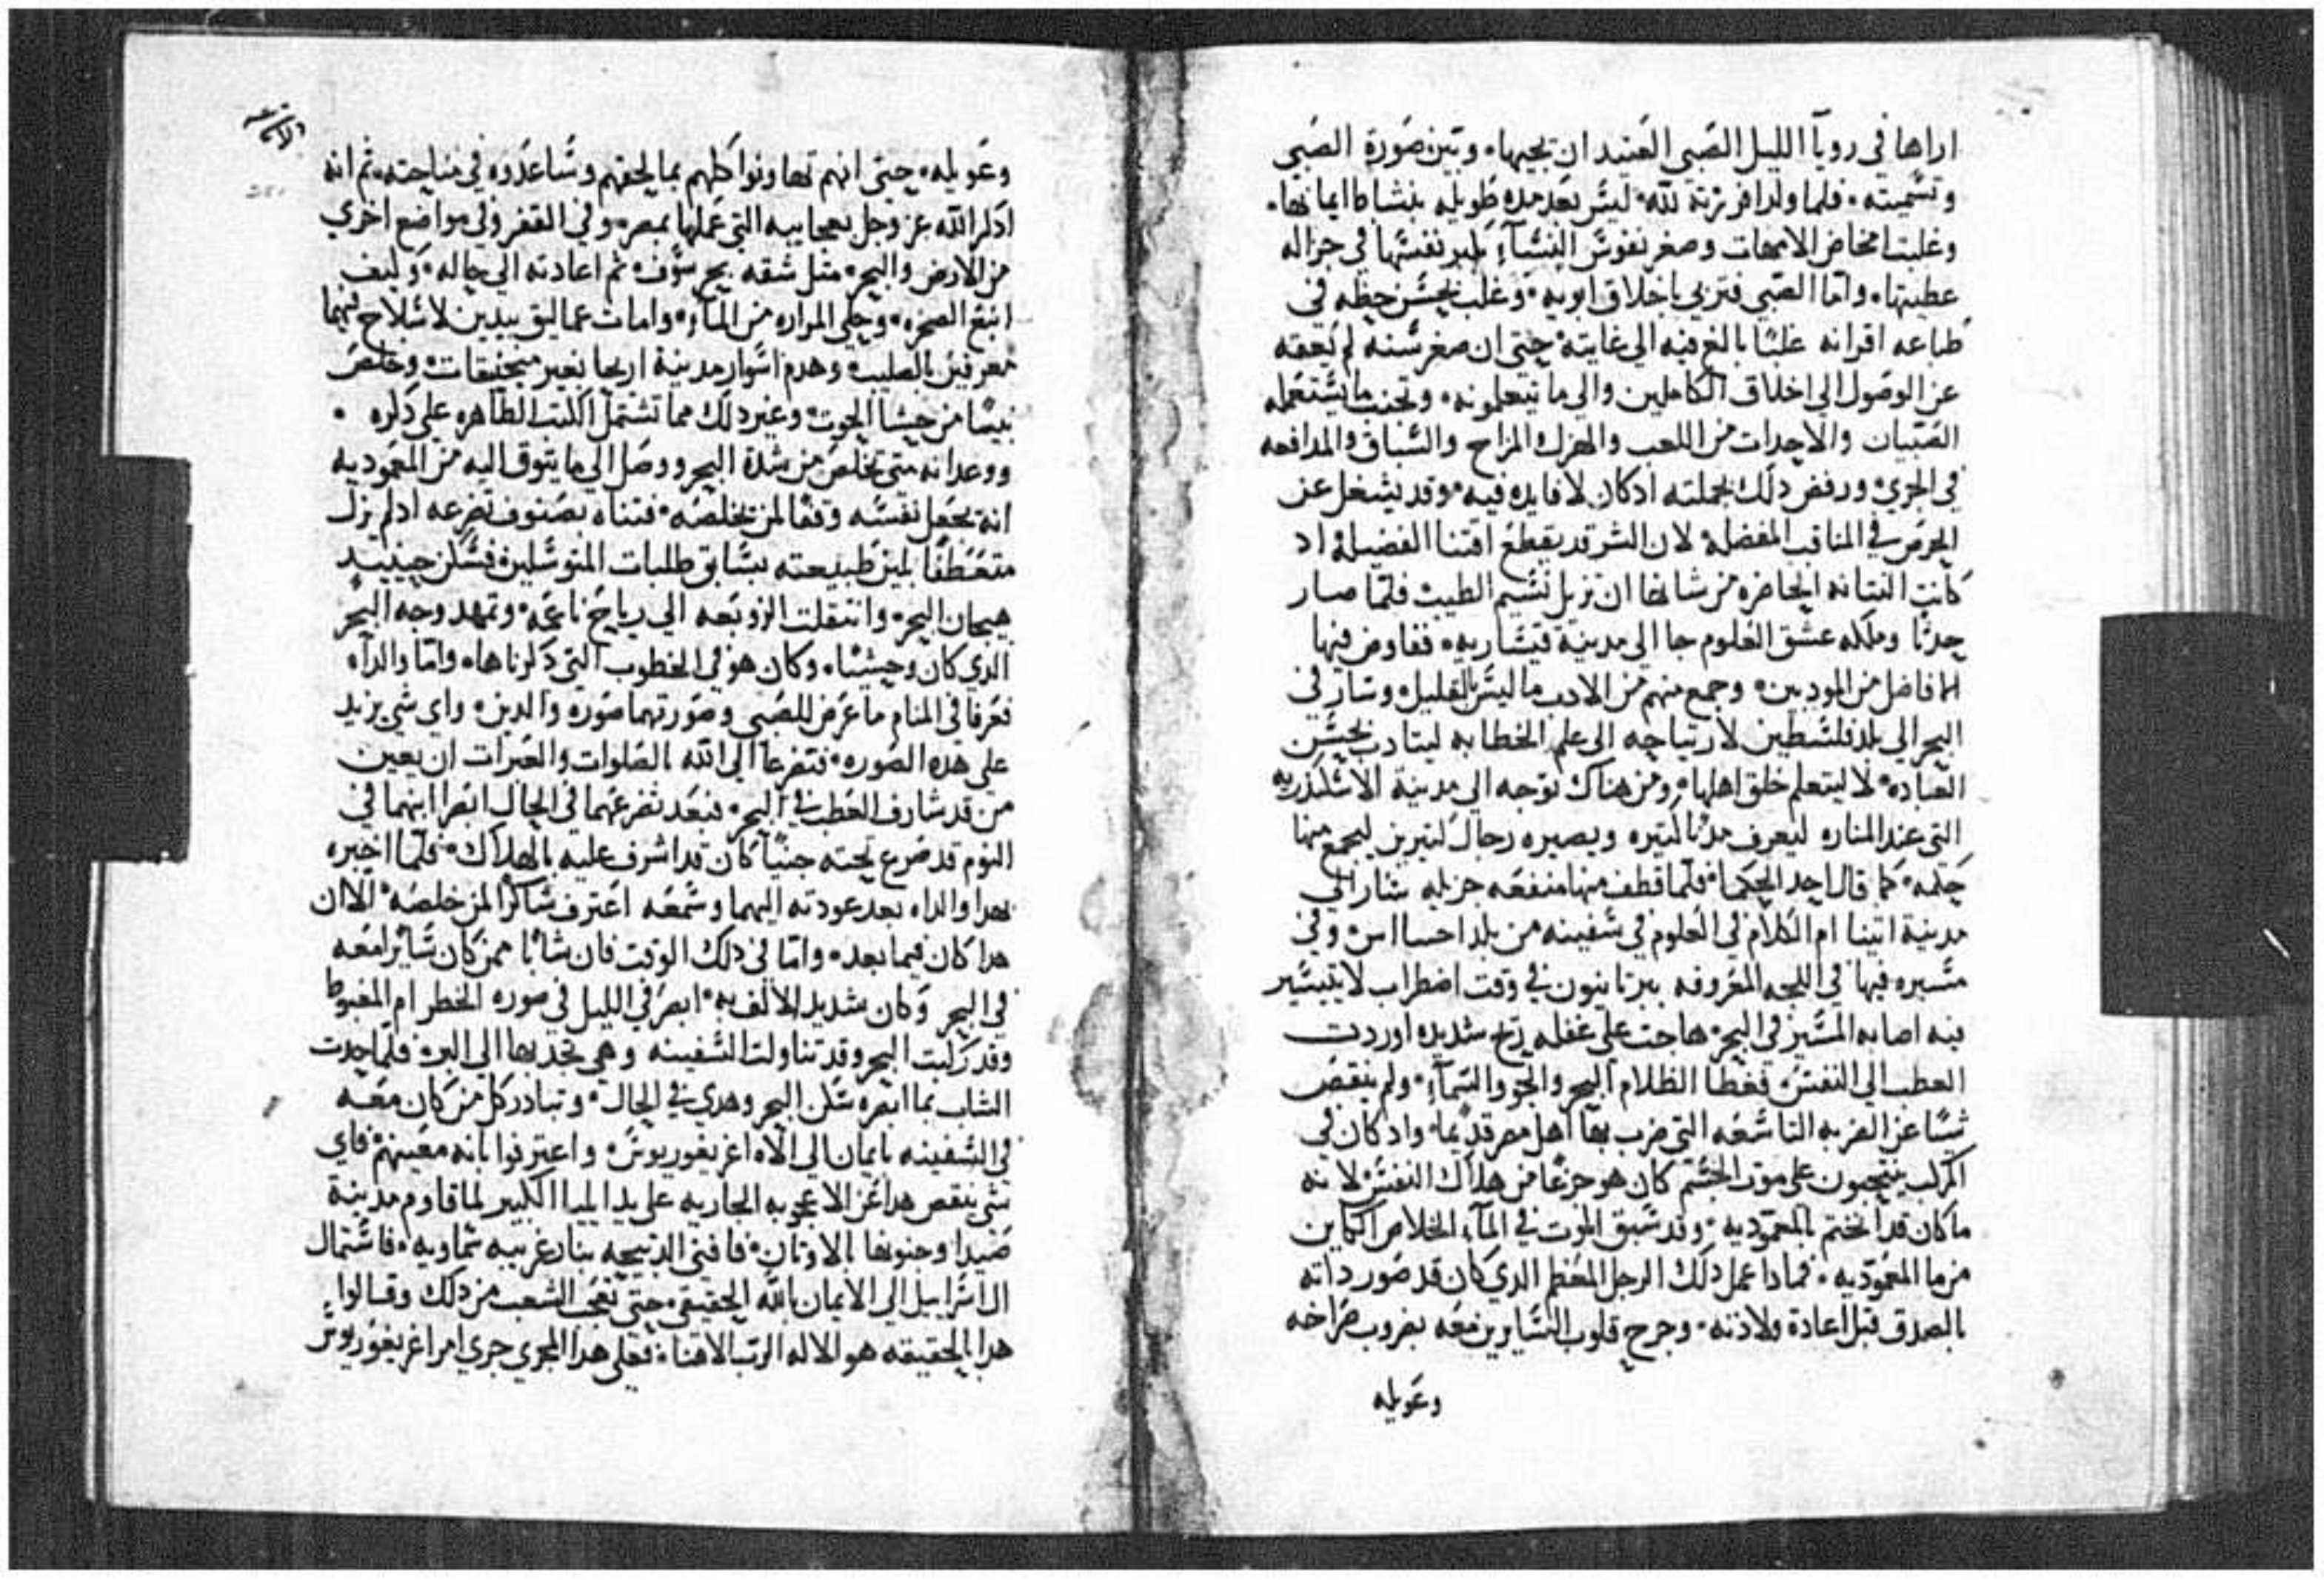 اراها في رويآ الليل الصَبي العَتيد ان يجيها. وتبين صَورة الصَبي
وتسَميته. فلما ولد افرزته لله ليسَ بعد مده طَويله بنشاط ايمانها.
وغلبت امخاض الامهات وصغر نفوسَ النِسَآءِ بكبر نفسَها في جزاله
عطيتها. وامّا الصَبي فتربي باخلاق ابويه. وغلب بحسَن حظه في
طباعه اقرانه غلبًا بالغ فيه الي غايته حتي ان صغر سَنه لم يَعقه
عن الوصَول الي اخلاق الكاملين والي ما يتعلمونه. وتجنب ما يسَتعمله
الصَبيان والاحداث من اللعب والهزل والمزاح والسَباق والمدافعه
في الجري ورفض دلك بجملته ادكان لا فايده فيه. وقد يشغل عن
الحرص في المناقب المفضله لان الشر قد يقطع اقتنا الفضيله اد
كانت النتانه الحاضره من شانها ان تزيل نسَيم الطيب فلمّا صار
حدثًا وملكه عشق العلوم جا الي مدينة قيسَاريه. ففاوض فيها
افاضل من المودبين. وجمع منهم من الادب ما ليسَ بالقليل. وسَار في
البحر الي بلد فلسَطين لارتياحه الي علم الخطابه ليتادب بحسَن
العباده لا ليتعلم خلق اهلها. ومن هناك توجه الي مدينة الاسَكندريه
التي عند المناره ليعرف مدنًا كتيره ويصيره رجال كتيرين ليجمع منها
حكمه. كما قال احد الحكما. فلمّا قطف منها منفعَه جزيله سَار الي
مدينة اتينا ام الكلام في العلوم في سَفينه من بلد احسااس وفي
مسَيره فيها في اللجه المعَروفه ببرتانيون في وقت اضطراب لا يتيسَير
فيه اصابه المسَير في البحر. هاجت علي غفله ريح شديده اوردت
العطب الي النفسَ. فغطا الظلام البحر والجو والسَمآءِ. ولم ينقص
شيًا عن الضربه التاسَعَه التي ضرب بهَا اهل مصر قديمًا. واد كان في
المركب ينتحبون علي موت الجسَم كان هو جزعًا من هلاك النفسَ لانه
ما كان قد انختم بالمعموديه. وقد سَبق الموت في المآءِ الخلاص الكاين
من ما المعَموديه. فمادا عمل دلك الرجل المعَظم الدي كان قد صَور داته
بالصدق قبل اعادة ولادته. وجرح قلوب السَايرين معَه بضروب صَراخه
وعَويله
وعَويله. حتي انهم تعاونوا كلهم بما يلحقهم وسَاعدوه في مناحته. ثم انه
ادكر الله عز وجل بعجايبه التي عَملها بمصر. وفي القفر وفي مواضع اخري
من الارض والبحر. متل شقه بحر سَوف. ثم اعادته الي حاله. وكيف
انبع الصخره. وحلي المراره من المآءِ. وامات عماليق بيدين لا سَلاح فيهما
معرفتين بالصليب وهدم اسَوار مدينة اريحا بغير منجنيقات. وخلصَ
نبيًا من حشا الحوت. وغير دلك مما تشتمل الكتب الطاهره علي دكره.
ووعد انه متي تخلصَ من شدة البحر ووصَل الي ما يتوق اليه من المعَموديه
انه يجعَل نفسَه وقفًا لمن تخلصَه. فتناه بصَنوف تضرعه ادلم يزل
متعَطفًا بمن طبيعته يسَابق طلبات المتوسَلين فسَكن حينيدٍ
هيجان البحر. وانتقلت الزوبَعه الي رياح ناعمَه. وتمهد وجه البحر
الدي كان وحيشًا. وكان هو في الخطوب التي دكرناها. وامّا والداه
فعَرفا في المنام ما عَرض للصَبي وصَورتهما صَوره والدين. واي شي يزيد
علي هده الصَوره. فتضرعا الي الله بالصَلوات والعَبرات ان يعين
من قد شارف العَطب في البحر. فبعَد تضرعهما في الحال ابصرا ابنهما في
النوم قد صَرع تحته جنيًا كان قد اشرف عليه بالهلاك. فلمّا اخبره
بهدا والداه بعد عودته اليهما وسَمعَه اعَترف شَاكرًا لمن خلصَه. الا ان
هدا كان فيما بعد. وامّا في دلك الوقت فان شابًا ممن كان سَايرًا معَه
في البحر وكان شديد الالف به. ابصَر في الليل في صوره الخطر ام المغبوط
وقد ركبت البحر وقد تناولت السَفينه وهي تجدبها الي البر. فلمّا حدت
الشاب بما ابصره سَكن البحر وهدي في الحال. وتبادر كل من كان معَه
في السَفينه بايمان الي الاه اغريغوريوسَ واعترفوا بانه معَينهم فاي
شي ينقص هدا عَن الاعجوبه الجاريه علي يد ايليا الكبير لما قاوم مدينة
صَيدا وحنونها بالاوتان. فافني الدبيحه بنار غريبه سَماويه. فاسَتمال
ال اسَراييل الي الايمان بالله الحقيقي. حتي تعجب الشعب من دلك وقالوا
هدا بالحقيقه هو الاله الرب الاهنا. فعلي هدا المجري جري امر اغريغوريوسَ